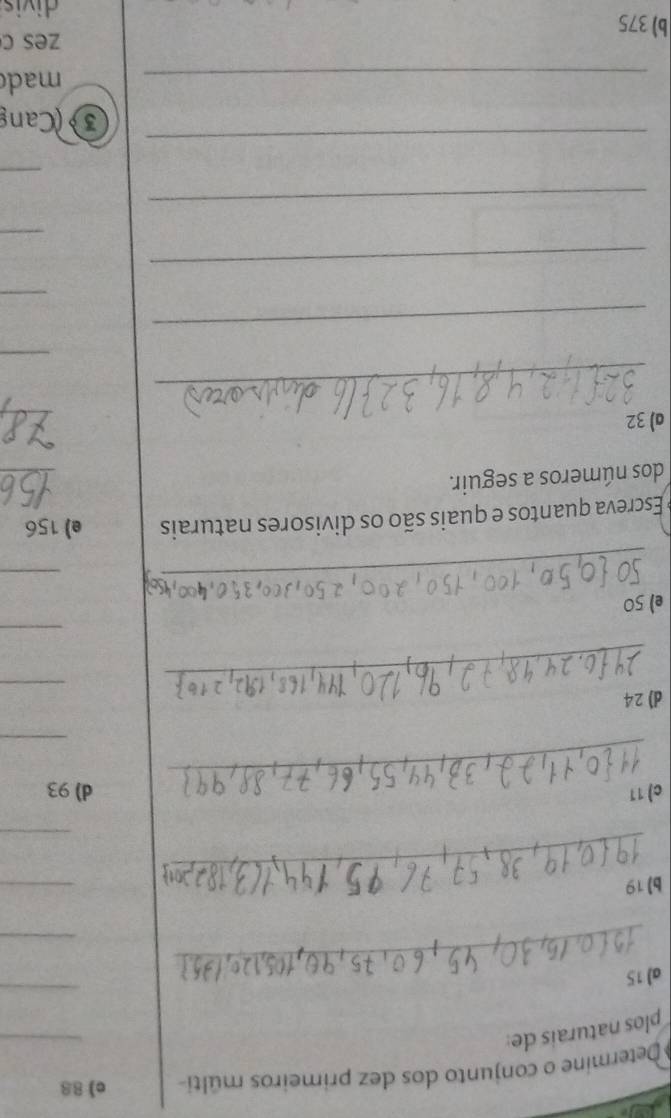 Determine o conjunto dos dez primeiros múlti-
plos naturais de:
a) 15
15{0,15,30,45,60,75,90,105,120,135}
b) 19
19{0,19,38,57,76,95,144,163,182,
c) 11
11{0,11,22,33,44,55,66,77,88,99}
d) 24
24{0,24,48,72,96,120,144,168,192,216}
e) 50
50{0,50,100,150,200,250,300,350,400,450}
Escreva quantos e quais são os divisores naturais
dos números a seguir.
a) 32
32{1,2,4,8,16,32}16 divisores
b) 375
c) 88
d) 93
e) 156
156
78,
3 (Cang
mado
zes c
divis